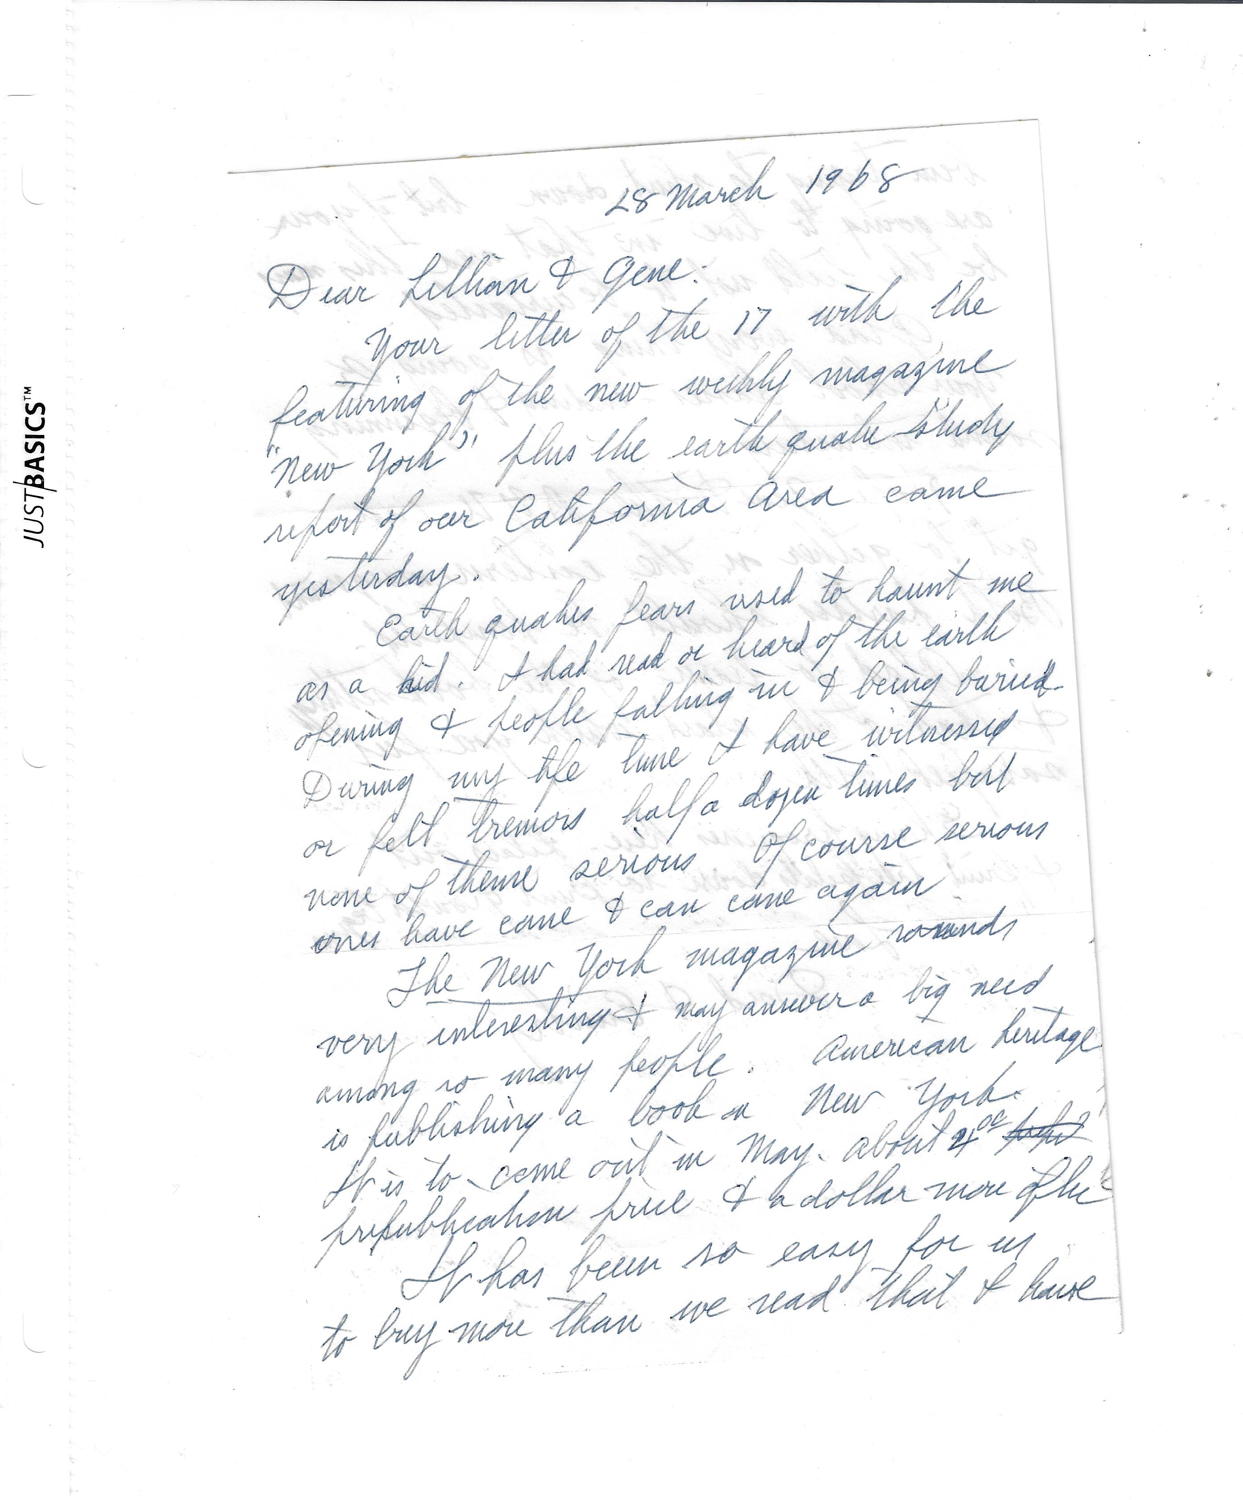 JUSTBASICS™
28 March 1968
Dear Lillian & Gene:
Your letter of the 17 with the
featuring of the new weekly magazine
"New York", plus the earth quake study
report of our California Area came
yesterday.
Earth quakes fears used to haunt me
as a kid. I had read or heard of the earth
opening & people falling in & being buried.
During my life time I have witnessed
or felt tremors half a dozen times but
none of theme serious. Of course serious
ones have come & can come again.
The New York magazine sounds
very interesting & may answer a big need
among so many people. American heritage
is publishing a book on New York.
It is to come out in May. about
prepublication price & a dollar more after
It has been so easy for us
to buy more than we read that I have